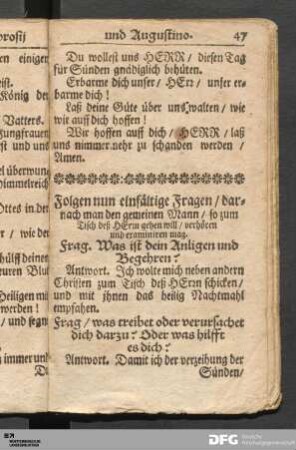 rosij
und Augustino. 47
en einiger
eist.
König der
Vatters.
Jungfrauen
st und uns
el überwun
Himmelreich
Ottes in der
r / wie de
hülff deiner
euren Blut
Heiligen mit
werden!
/ und segn
n immer und
Du wollest uns HERR / diesen Tag
für Sünden gnädiglich behüten.
Erbarme dich unser / HErr / unser er-
barme dich!
Laß deine Güte über uns walten / wie
wir auff dich hoffen!
Wir hoffen auff dich / HERR / laß
uns nimmermehr zu schanden werden /
Amen.
Folgen nun einfältige Fragen / dar-
nach man den gemeinen Mann / so zum
Tisch deß HErrn gehen will / verhören
und examiniren mag.
Frag. Was ist dein Anligen und
Begehren?
Antwort. Ich wolte mich neben andern
Christen zum Tisch deß HErrn schicken /
und mit ihnen das heilig Nachtmahl
empfahen.
Frag / was treibet oder verursachet
dich darzu? Oder was hilfft
es dich?
Antwort. Damit ich der verzeihung der
Sünden /
DFG Deutsche
Forschungsgemeinschaft